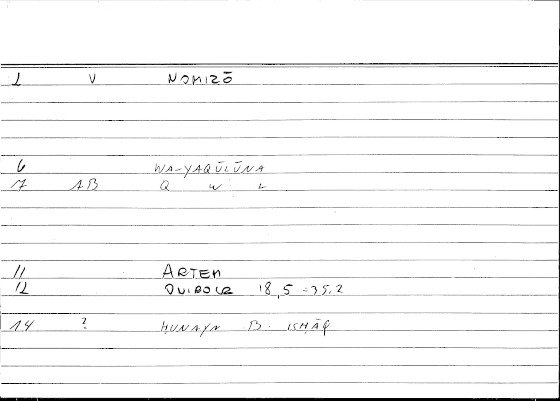 1 V NOMIZŌ
6 WA-YAQŪLŪNA
17 AB Q W L
11 ARTEM
12 18,5 = 35,2
14 ? ḤUNAYN B. ISḤĀQ